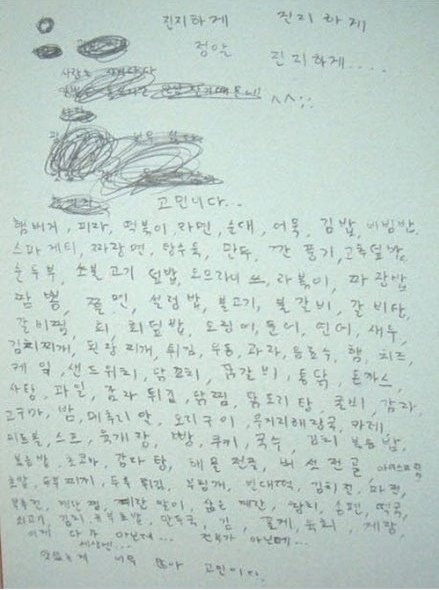 진지하게 진지하게
정말 진지하게....
^^;;
고민니다...
햄버거, 피자, 떡볶이, 라면, 순대, 어묵, 김밥, 비빔밥,
스파게티, 짜장면, 탕수육, 만두, 깐풍기, 고추덮밥,
순두부 소불고기 덮밥, 오므라이스, 라볶이, 짜장밥
짬뽕, 쫄면, 설렁탕, 불고기, 불갈비, 갈비탕,
갈비찜, 회, 회덮밥, 도롱이, 문어, 연어, 새우,
김치찌개, 된장찌개, 튀김, 우동, 과자, 음료수, 햄, 치즈,
샌드위치, 닭꼬치, 통닭, 돈까스,
사탕, 과일, 감자 튀김, 닭찜, 닭도리탕, 굴비, 감자,
고구마, 밤, 메추리 알, 오리구이, 카레,
스프, 육개장, 빵, 쿠키, 국수, 김치 볶음밥,
볶음밥, 초코바, 감자탕, 해물 전골, 버섯전골,
초밥, 두부 튀김, 부침개, 빈대떡, 김치전, 파전,
계란찜, 계란말이, 삶은 계란, 참치, 송편, 떡국,
김치, 만두국, 김, 꽃게, 육회, 계랑,
이게 다 가 아닌데... 전부가 아닌데...
너무 많아 고민이다.